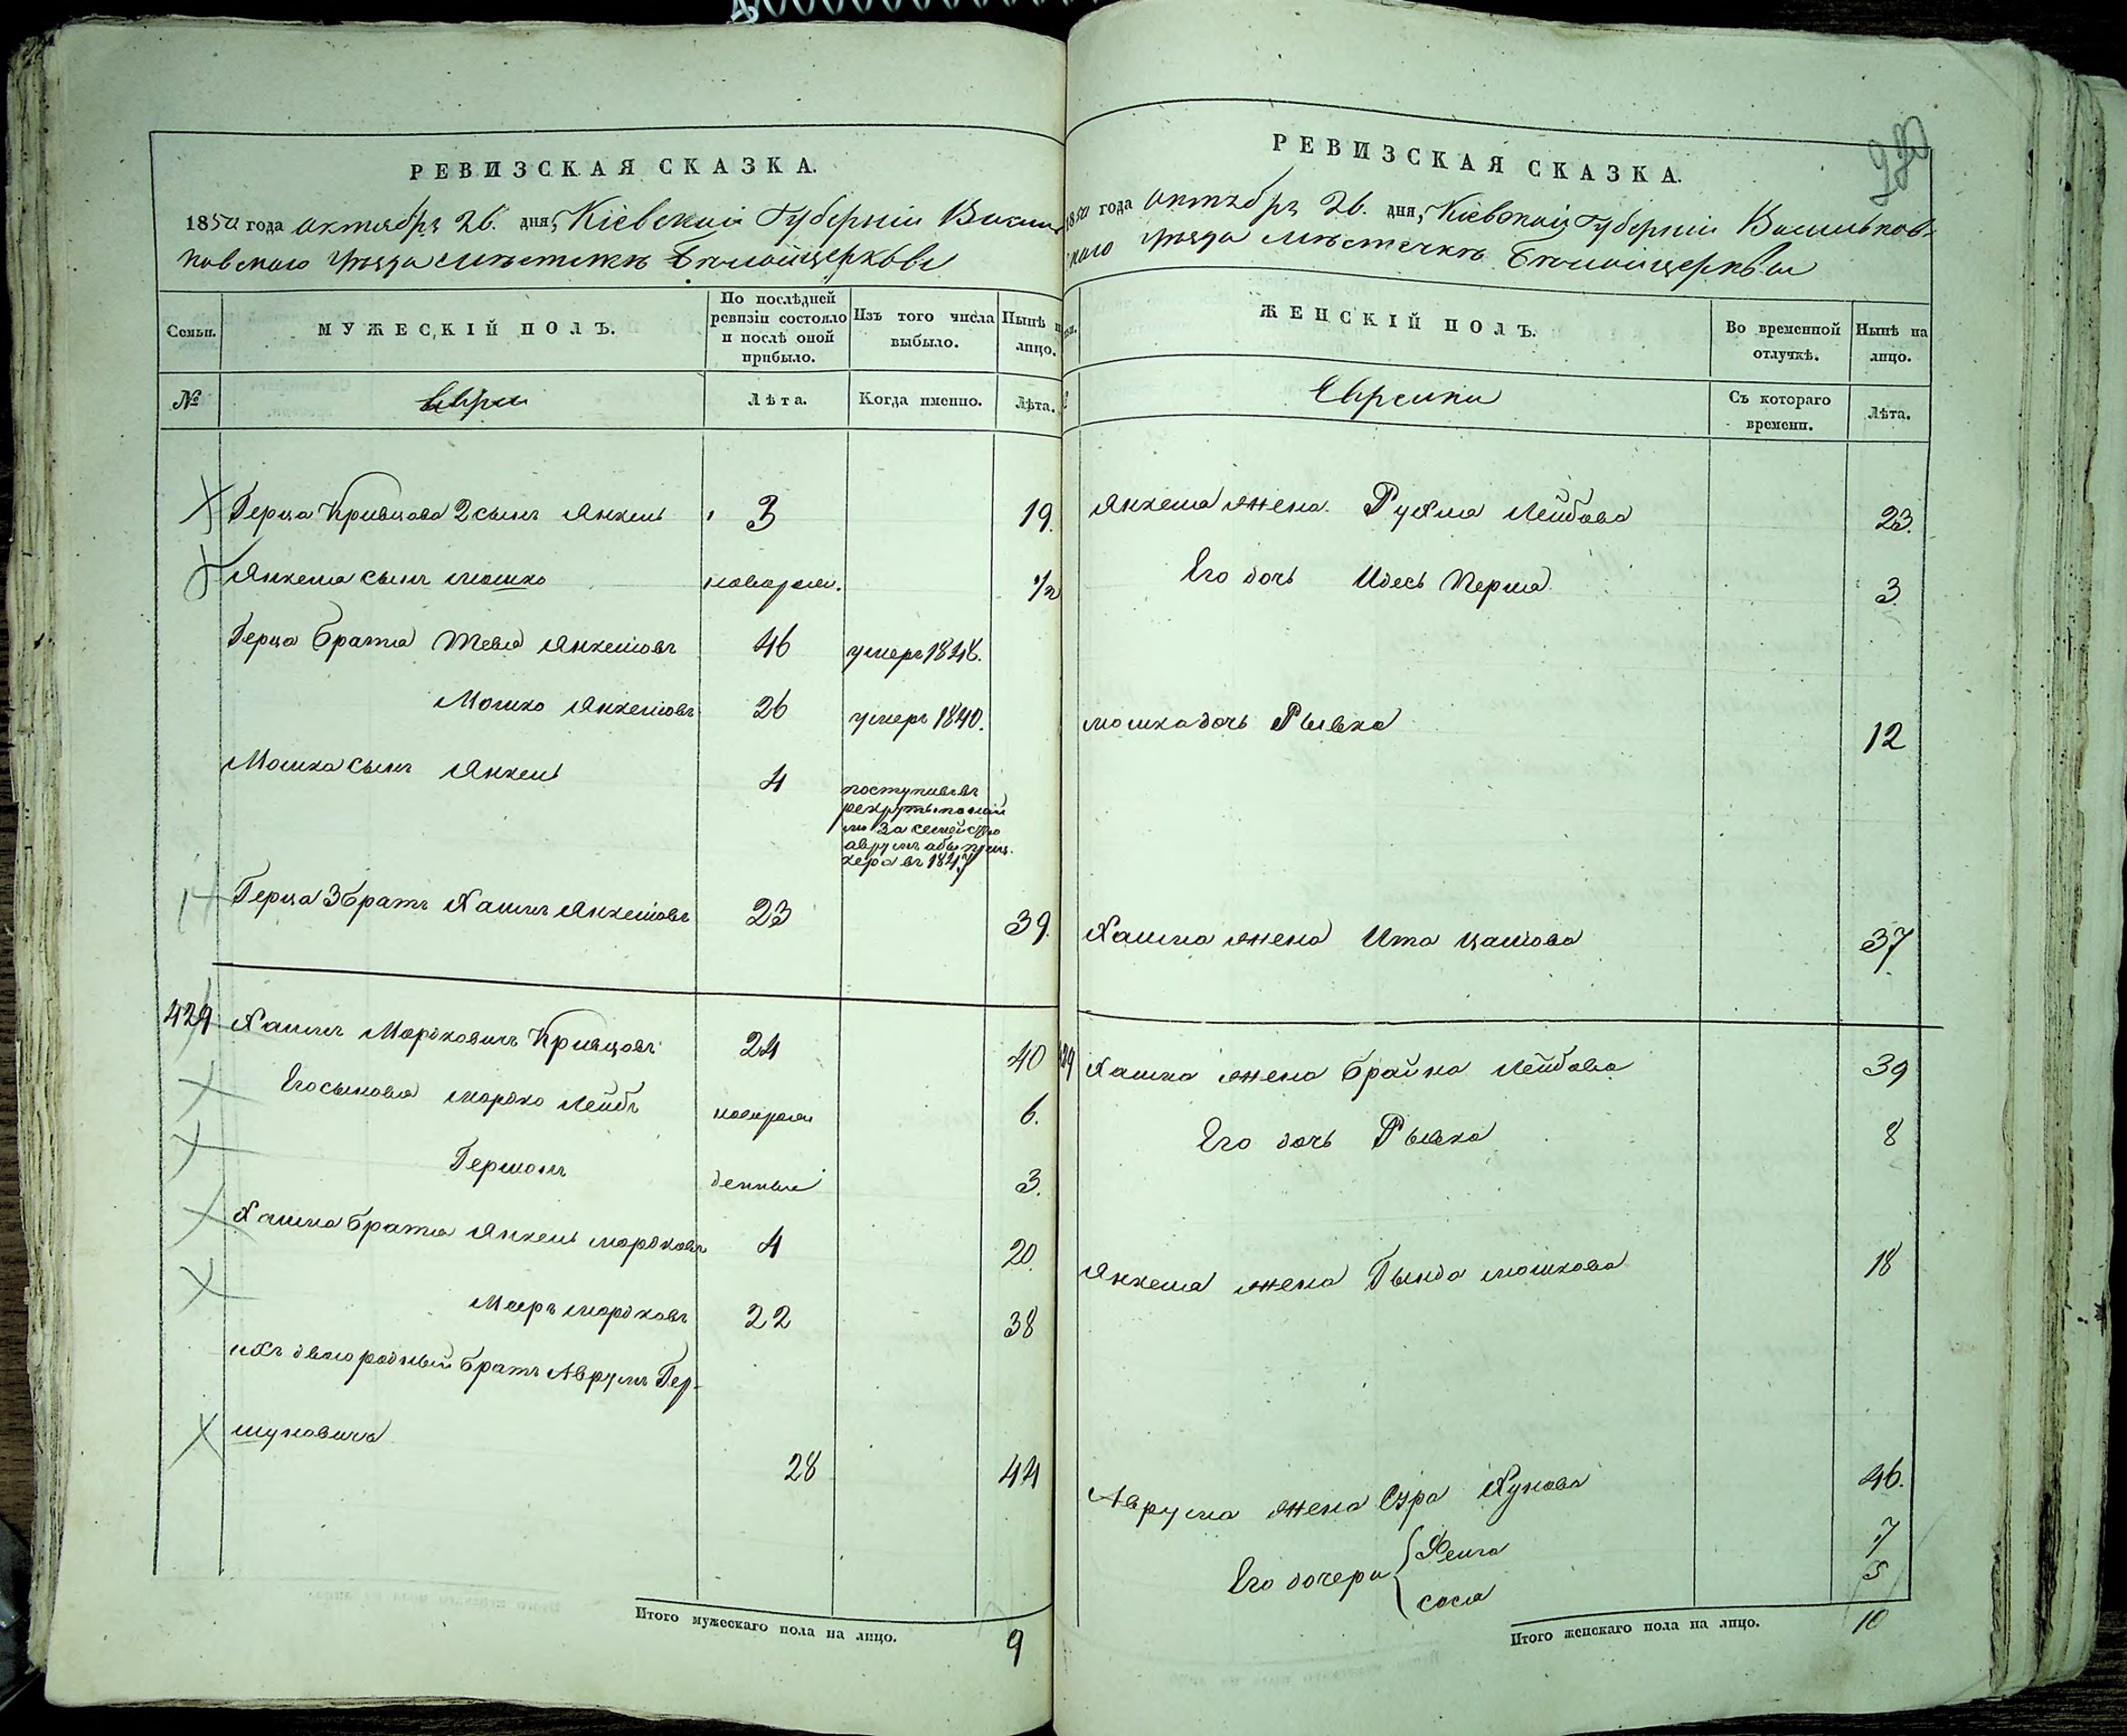 РЕВИЗСКАЯ СКАЗКА.
1850 года октября 26. дня, Кіевской Губерніи Василь
ковского уѣзда мѣстечкѣ Бѣлойцеркве
Семьи.
МУЖЕСКІЙ ПОЛЪ.
По послѣдней ревизіи состояло и послѣ оной прибыло.
Изъ того числа выбыло.
Нынѣ на лицо.
№
Евреи
Лѣта.
Когда именно.
Лѣта.
Герца Кривцова 2 сынъ Янкель 3 19.
Янкеля сынъ Мошко новорож. 1/2
Герца братья Тевя Янкеліовъ 46 умеръ 1848.
Мошко Янкеліовъ 26 умеръ 1840.
Мошка сынъ Янкель 4
поступилъ въ
рекруты
за семейство
Аврумъ
кера въ 1847
Герца 3 братъ Хаимъ Янкеліовъ 23 39.
429 Хаимъ Мордковичъ Кривцовъ 24 40
Его сыновья Мордко Лейбъ новорож 6.
Гершонъ денные 3.
Хаима братья Янкель Мордковъ 4 20.
Мееръ Мордковъ 22 38
ихъ двоюродный братъ Аврумъ Гер-
шуновичъ
28 44
Итого мужескаго пола на лицо. 9
280
РЕВИЗСКАЯ СКАЗКА.
1850 года октября 26. дня, Кіевской Губерніи Васильков-
скаго уѣзда мѣстечкѣ Бѣлойцеркви
ЖЕНСКІЙ ПОЛЪ.
Во временной отлучкѣ.
Нынѣ на лицо.
Еврейки
Съ котораго времени.
Лѣта.
Янкеля жена Рухля Лейбова 23.
Его дочь Идесь Перля 3.
Мошка дочь Рывка 12
Хаима жена Ита 37
429 Хаима жена Брайна Лейбова 39
Его дочь Рывка 8
Янкеля жена Гинда Мошкова 18
Аврума жена Сура Хунова 46.
Его дочери 7
Сося 5
Итого женскаго пола на лицо. 10